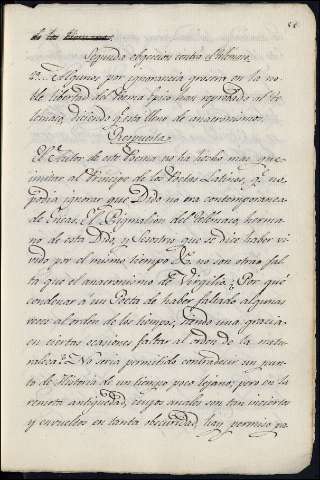 Segunda objeción contra el Telémaco.
Algunos por ignorancia grosera en la no-
ble libertad del Poema Epico han reprobado al Te-
lémaco, diciendo q.e esta lleno de anacronismos.
Respuesta
El Autor de este Poema no ha hecho mas que
imitar al Principe de los Poetas Latinos, q.e no
podia ignorar que Dido no era contemporanea
de Eneas. El Pigmalion del Telémaco, herma-
no de esta Dido, y Sesotris que se dice haber vi-
vido por el mismo tiempo &c. no son otra fal-
ta que el anacronismo de Virgilio. ¿Por qué
condenar à un Poeta de haber faltado algunas
veces al orden de los tiempos, siendo una gracia
en ciertas ocasiones faltar al orden de la natu-
raleza? No seria permitido contradecir un pun-
to de Historia de un tiempo poco lejano; pero en la
remota antigüedad, cuyos anales son tan inciertos
y envueltos en tanta obscuridad, hay permiso pa-